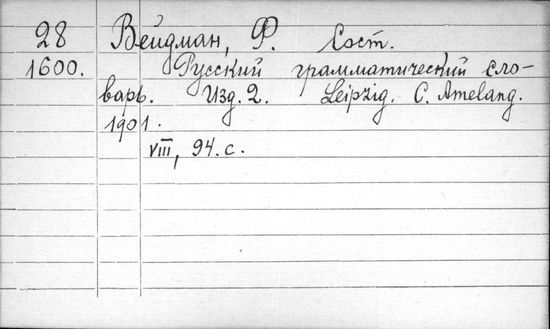 28 Вейдман, Ф. Сост.
1600. Русский грамматический сло-
варь. Изд. 2. Leipzig. C. Amelang.
1901.
VIII, 94. с.